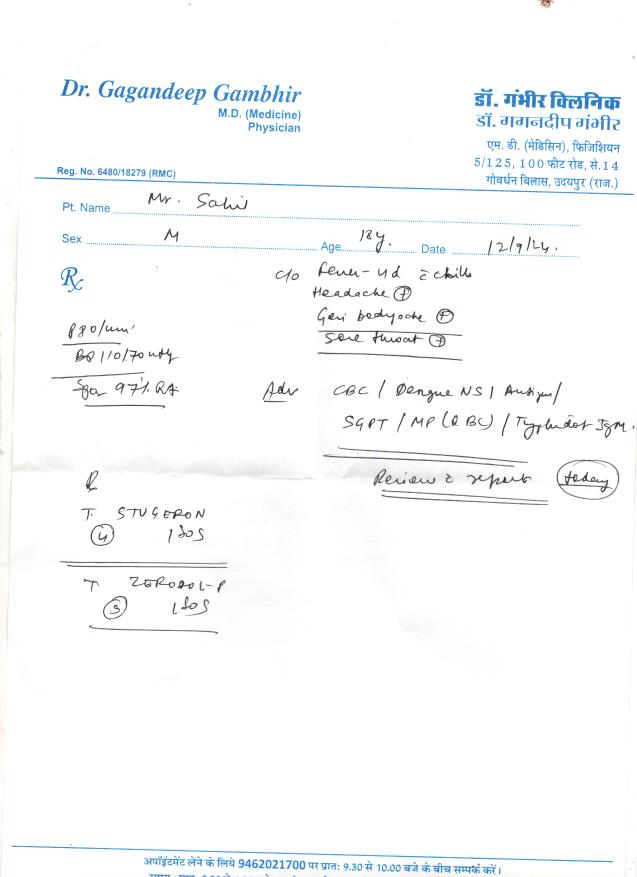 Dr. Gagandeep Gambhir
M.D. (Medicine)
Physician
Reg. No. 6480/18279 (RMC)
डॉ. गंभीर क्लिनिक
डॉ. गगनदीप गंभीर
एम. डी. (मेडिसिन), फिजिशियन
5/125, 100 फीट रोड, से.14
गोवर्धन विलास, उदयपुर (राज.)
Pt. Name Mr. Sahil
Sex M Age 18y. Date 12/9/24.
Rx c/o Fever - 4d c̄ chills
Headache +
Gen bodyache +
Sore throat +
P 80/min
BP 110/70 mmHg
97% RA
Adv CBC / Dengue NS1 Antigen /
SGPT / MP (QBC) / Typhidot IgM.
Review c̄ reports today
R
T. STUGERON
4 1 SOS
T ZERODOL-P
1 SOS
अपॉइंटमेंट लेने के लिये 9462021700 पर प्रातः 9.30 से 10.00 बजे के बीच सम्पर्क करें।